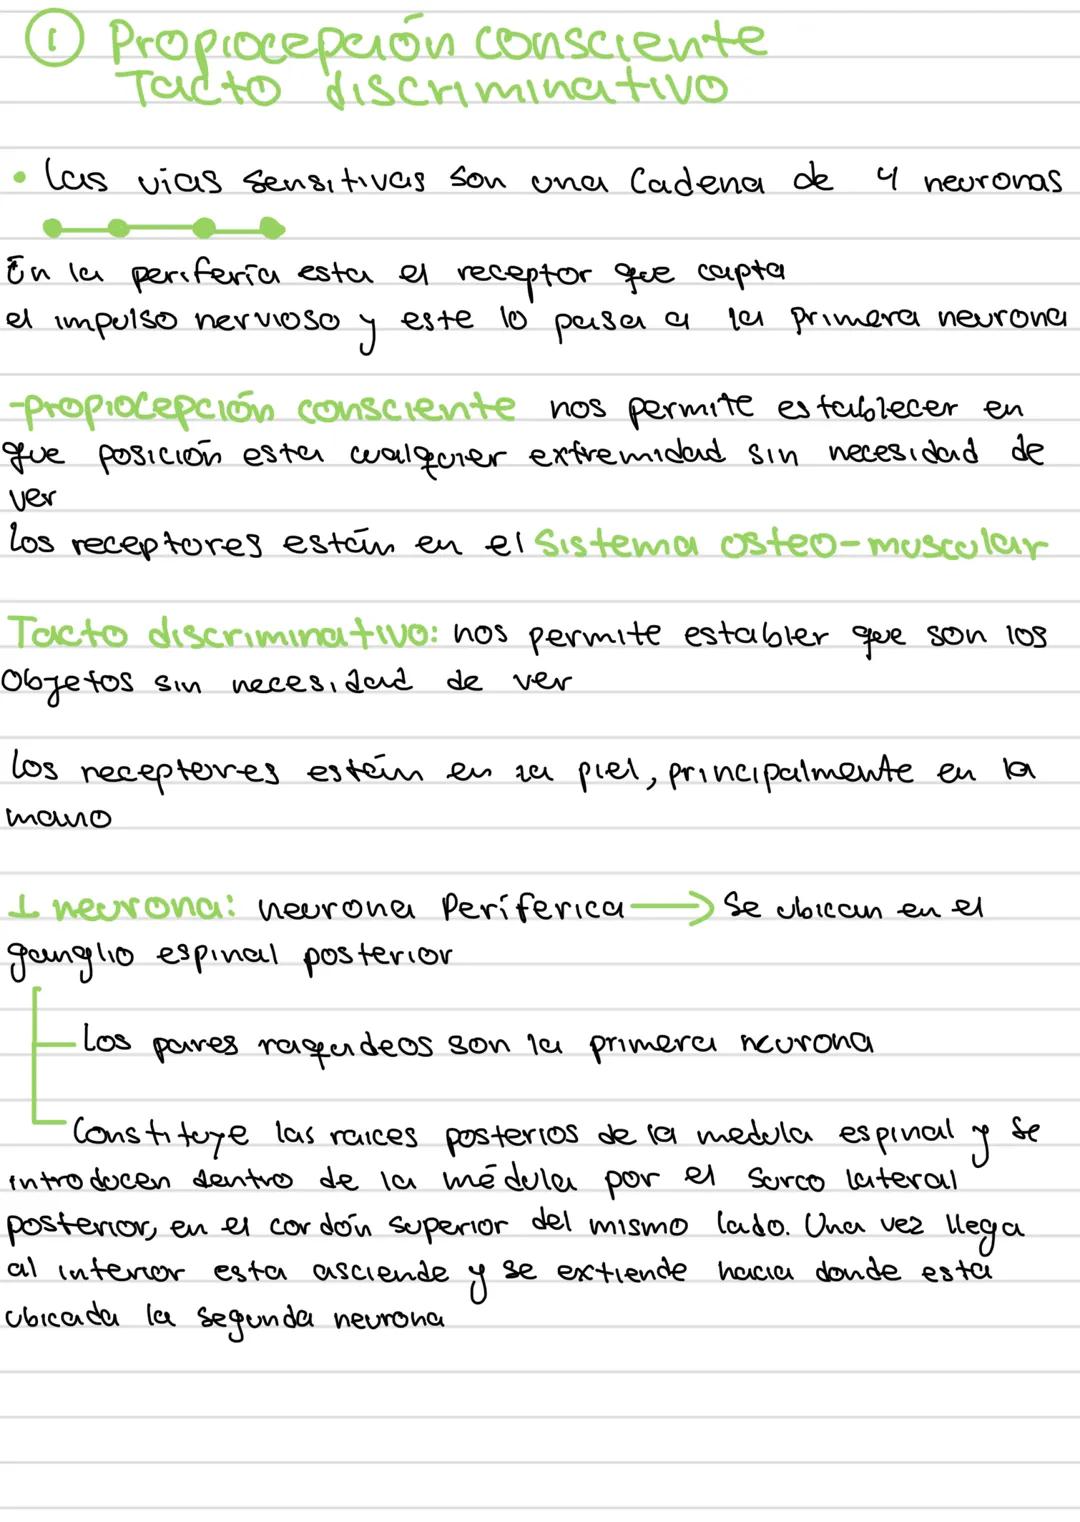 1 Propiocepción consciente
Tacto discriminativo
• Las vias sensitivas son una Cadena de 4 neuronas
En la periferia esta el receptor que capta
el impulso nervioso y este lo pasa a la primera neurona
-propiocepción consciente nos permite establecer en
que posición esta cualquier extremidad sin necesidad de
ver
Los receptores están en el Sistema osteo-muscular
Tacto discriminativo: nos permite establer que son los
Objetos sin necesidad de ver
Los receptores están en la piel, principalmente en la
mano
1 neurona: neurona Periferica → Se ubican en el
ganglio espinal posterior
Los pares raquideos son la primera neurona
Constituye las raices posterios de la medula espinal y se
introducen dentro de la médula por el surco lateral
posterior, en el cordón superior del mismo lado. Una vez llega
al interior esta asciende y se extiende hacia donde esta
ubicada la segunda neurona